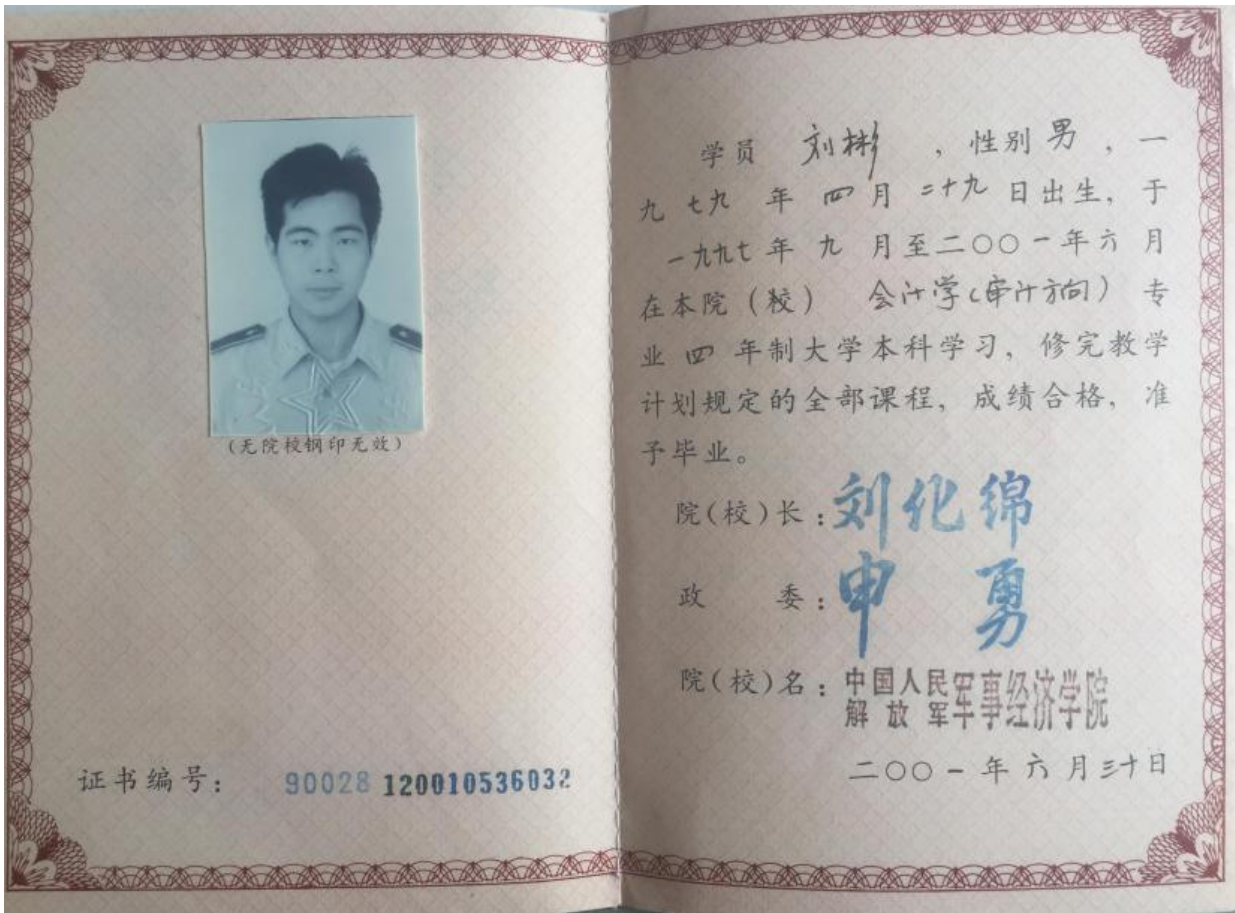 （无院校钢印无效）
证书编号： 90028 120010536032
学员 刘彬 ，性别 男 ，一
九七九 年 四 月 二十九 日出生，于
一九九七 年 九 月至二〇〇一年六 月
在本院（校） 会计学（审计方向） 专
业 四 年制大学本科学习，修完教学
计划规定的全部课程，成绩合格，准
予毕业。
院（校）长：刘化绵
政 委：申 勇
院（校）名：中国人民解放军军事经济学院
二〇〇一年六月三十日